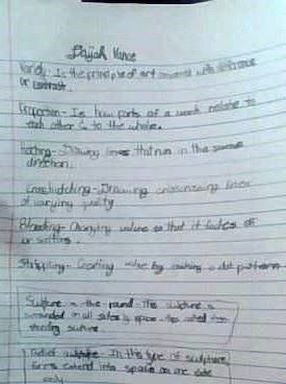 Dajah Vance
Variety- Is the principle of art concerned with difference
or contrast.
Proportion- Is how parts of a work relate to
each other & to the whole.
Hatching- Drawing lines that run in the same
direction.
Crosshatching- Drawing crisscrossing lines
of varying
Blending- Changing value so that it fades off
or
Stippling- Creating value by making a dot pattern
Sculpture in the round- this sculpture is
surrounded on all sides by space. Also called free
standing
Relief sculpture- In this type of sculpture
forms extend into space on one side
only